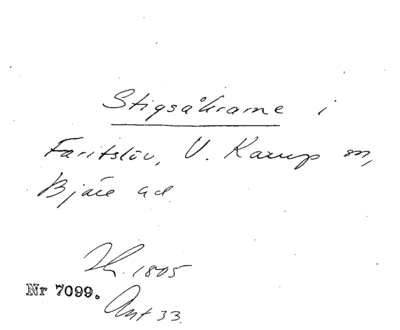 Stigsåkrarne i
Faritslöv, V. Karup sn,
Bjäre hd.
Lh. 1805
Nr 7099.
Ant 33.